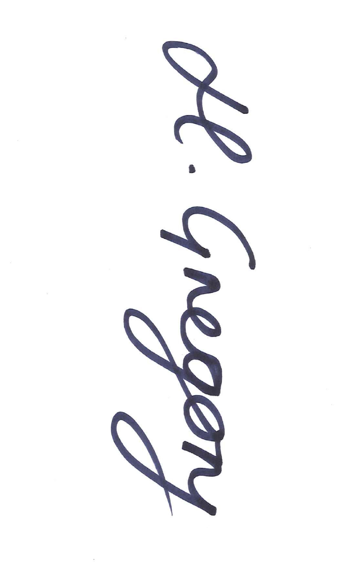 H. Gregory